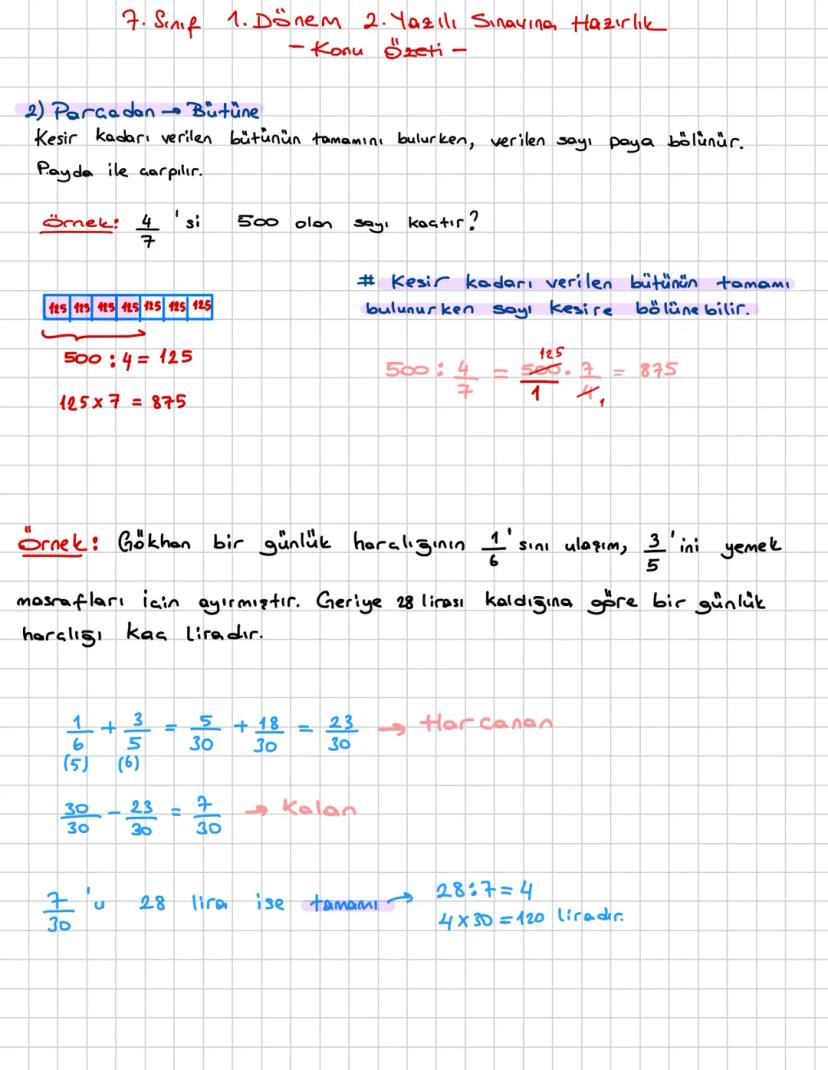 7. Sınıf 1. Dönem 2. Yazılı Sınavına Hazırlık
- Konu Özeti -
2) Parçadan → Bütüne
Kesir kadarı verilen bütünün tamamını bulurken, verilen sayı paya bölünür.
Payda ile çarpılır.
Örnek: 4/7 'si 500 olan sayı kaçtır?
# Kesir kadarı verilen bütünün tamamı
bulunurken sayı kesire bölünebilir.
125 125 125 125 125 125 125
500 : 4 = 125
125 x 7 = 875
500 : 4/7 = 500/1 . 7/4 = 875
125
1
Örnek: Gökhan bir günlük harçlığının 1/6 'sını ulaşım, 3/5 'ini yemek
masrafları için ayırmıştır. Geriye 28 lirası kaldığına göre bir günlük
harçlığı kaç liradır.
1/6 + 3/5 = 5/30 + 18/30 = 23/30 → Harcanan
(5) (6)
30/30 - 23/30 = 7/30 → Kalan
7/30 'u 28 lira ise tamamı → 28:7=4
4x30=120 liradır.